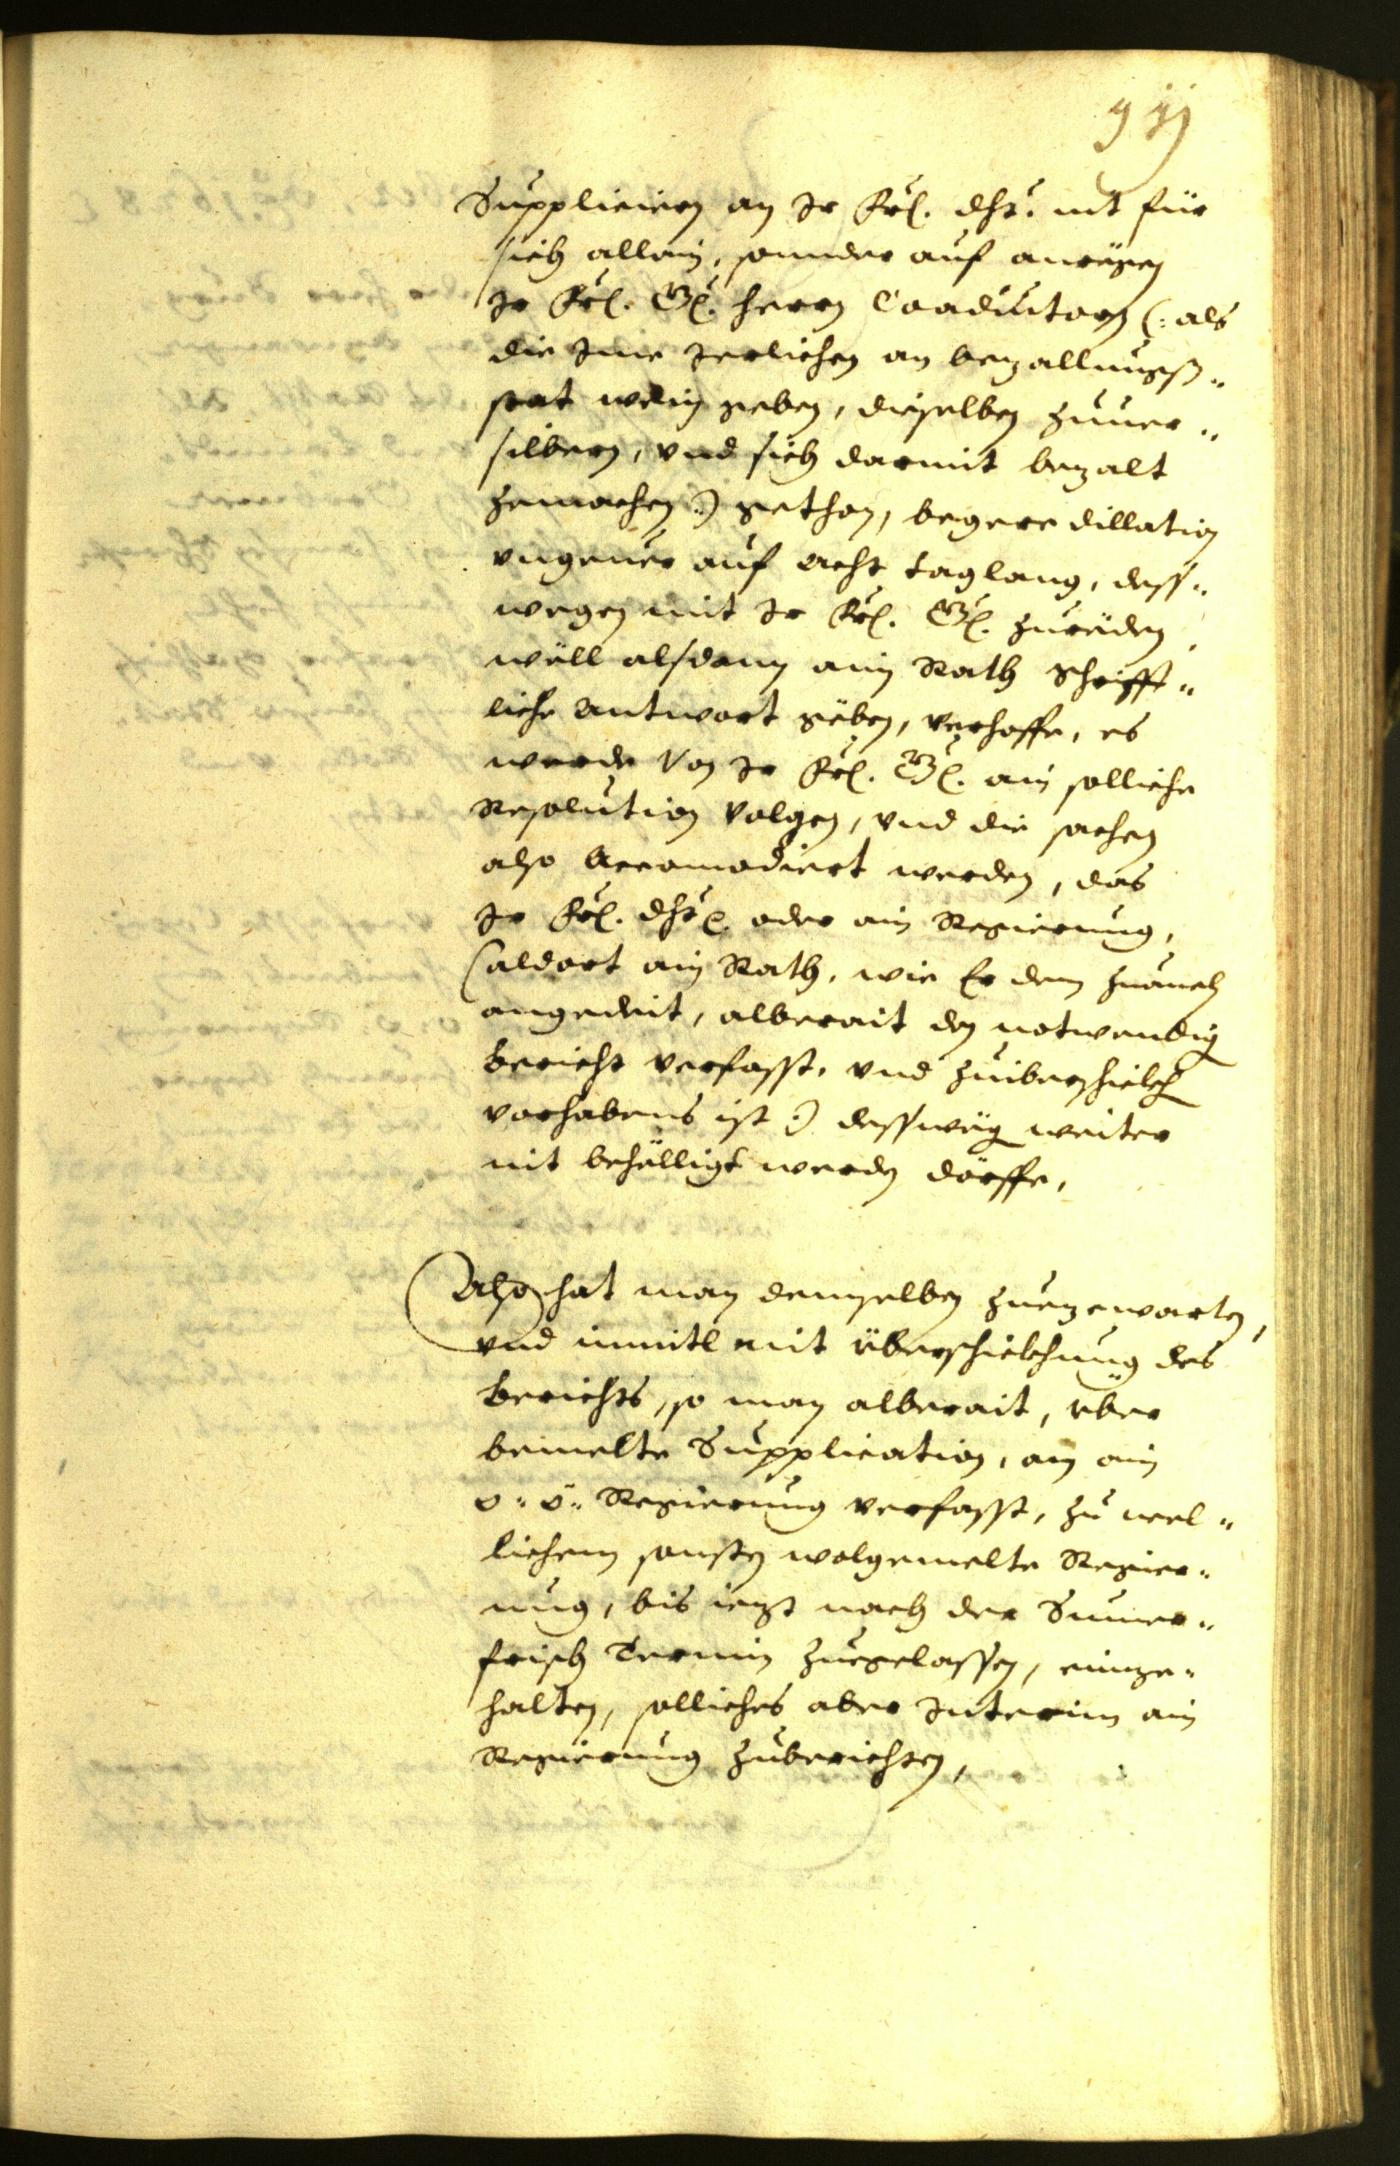 Supplicieren an Ir Frl. dht. nit für
sich allain, sonnder auf anrëgen
Ir Frl. Gl. herrn Coaduitorn (: als
die Ime Jerlichen an bezallungß„
stat wein geben, dieselben zuuer„
silbern, vnd sich darmit bezalt
zemachen :) gethon, begere dillation
vngeuer auf acht taglang, dess„
wegen mit Ir Frl. Gl. zuräden,
wëll alsdann ain Rath Schrifft„
liche antwort gëben, verhoffe, es
werde Von Ir Frl. Gl. ain solliche
Resolution volgen, vnd die sachen
also Accomodiert werden, das
Ir Frl. dhtl. oder ain Regierung,
(aldort ain Rath, wie Er dem
angedeit, alberait den notwendig
bericht verfasst, vnd zuiberschickh
vorhabens ist :) desswëg weiter
nit behëlligt werden dörffe,
Also hat man demselben zuezewarten,
vnd inmitl mit überschickhung des
berichts, so man alberait, über
bemelte Supplication, an ain
o: ö: Regierung verfasst, zu wel„
lichem sonsten wolgemelte Regier„
ung, bis iezt nach der Sumer„
frisch Termin zuegelassen, einze„
halten, solliches aber Interim ain
Regierung zuberichten,